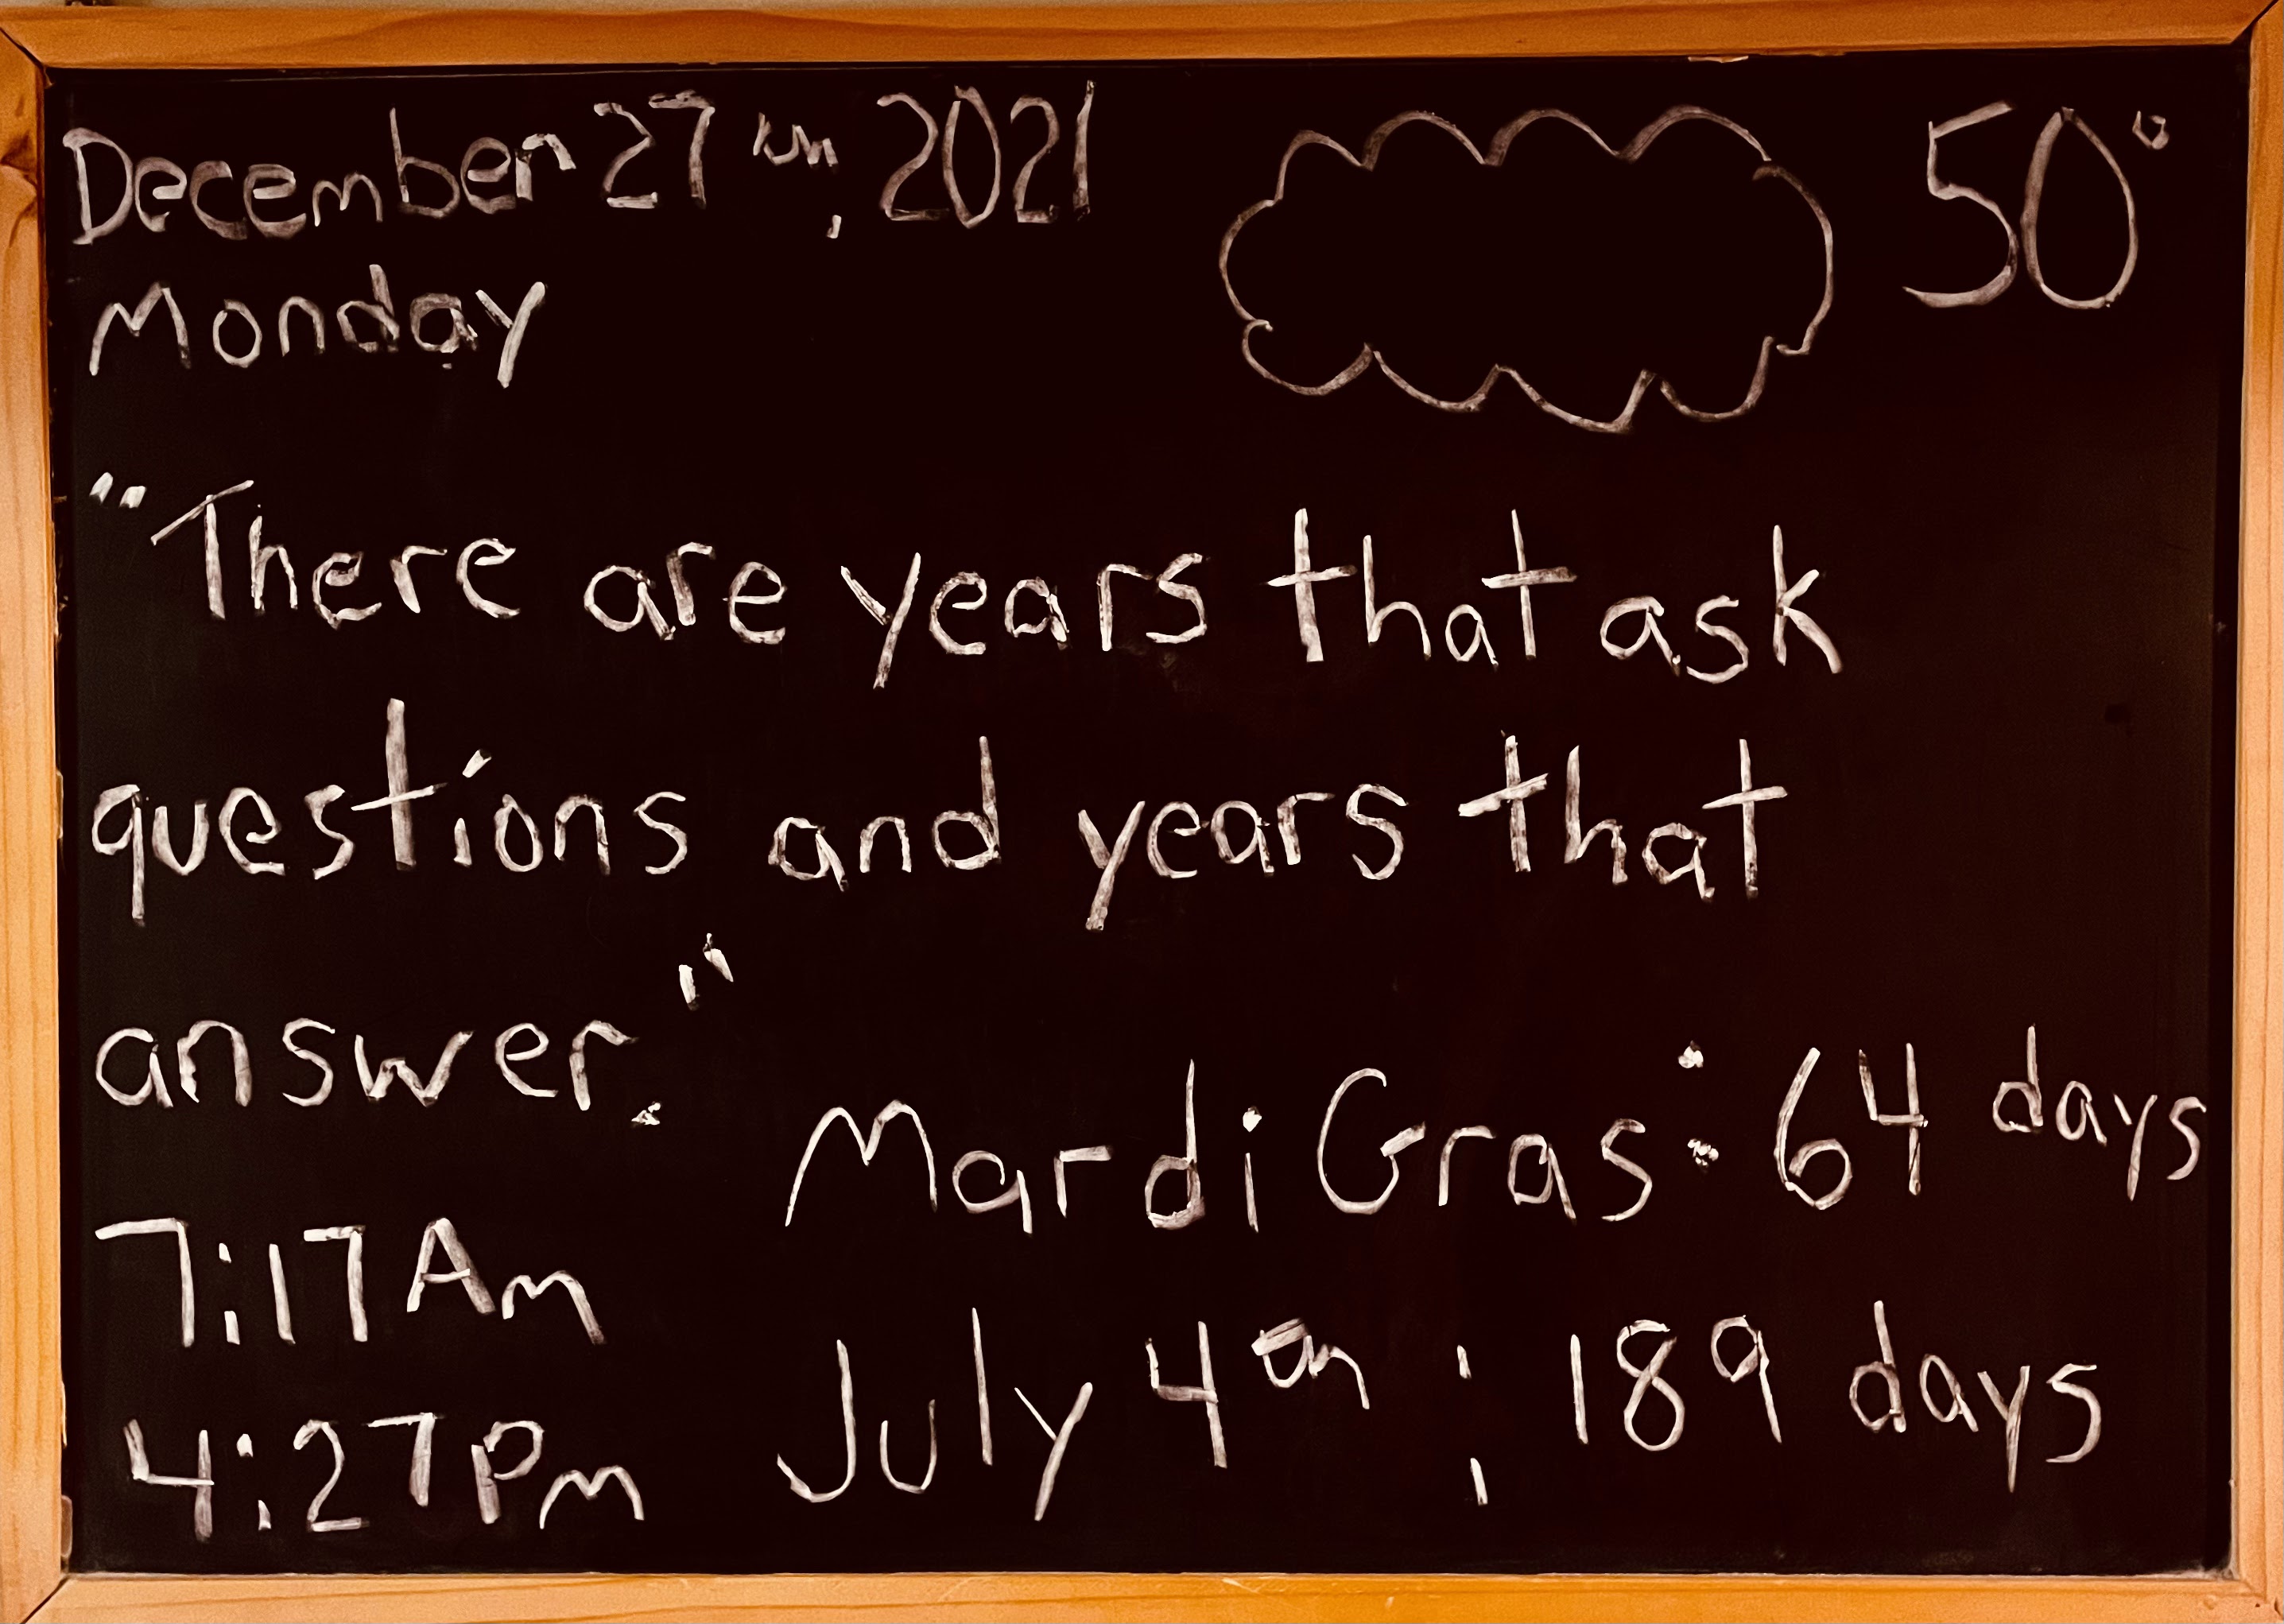 December 27th, 2021
50°
Monday
"There are years that ask
questions and years that
answer."
Mardi Gras: 64 days
7:17 Am
July 4th: 189 days
4:27 Pm